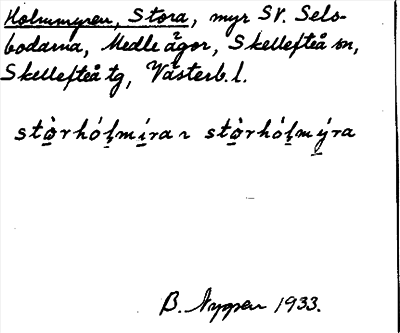 Holmmyren, Stora, myr SV. Sels-
bodarna, Medle ägor, Skellefteå sn,
Skellefteå tg, Västerb. l.
stòrhólmíra ~ stòrhólmýra
B. Nygren 1933.